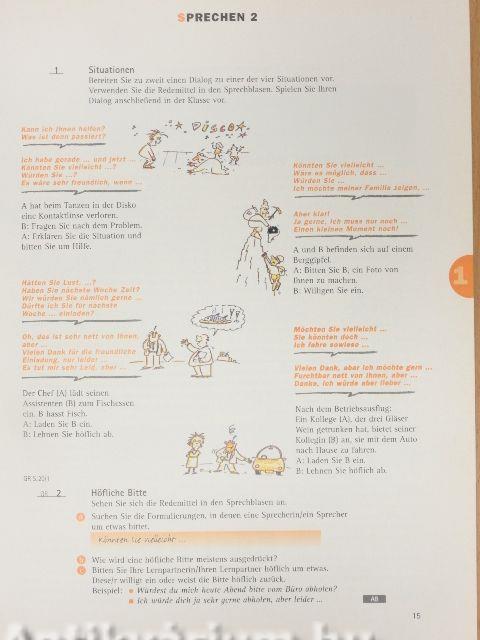 SPRECHEN 2
1 Situationen
Bereiten Sie zu zweit einen Dialog zu einer der vier Situationen vor.
Verwenden Sie die Redemittel in den Sprechblasen. Spielen Sie Ihren
Dialog anschließend in der Klasse vor.
Kann ich Ihnen helfen?
Was ist denn passiert?
DISCO
Ich habe gerade ... und jetzt ...
Könnten Sie vielleicht ...?
Würden Sie ...?
Es wäre sehr freundlich, wenn ...
A hat beim Tanzen in der Disko
eine Kontaktlinse verloren.
B: Fragen Sie nach dem Problem.
A: Erklären Sie die Situation und
bitten Sie um Hilfe.
Könnten Sie vielleicht ...
Wäre es möglich, dass ...
Würden Sie ...
Ich möchte meiner Familie zeigen, ...
Aber klar!
Ja gerne, ich muss nur noch ...
Einen kleinen Moment noch!
A und B befinden sich auf einem
Berggipfel.
A: Bitten Sie B, ein Foto von
Ihnen zu machen.
B: Willigen Sie ein.
1
Hätten Sie Lust, ...?
Haben Sie nächste Woche Zeit?
Wir würden Sie nämlich gerne ...
Dürfte ich Sie für nächste
Woche ... einladen?
Oh, das ist sehr nett von Ihnen,
aber ...
Vielen Dank für die freundliche
Einladung, nur leider ...
Es tut mir sehr Leid, aber ...
Der Chef (A) lädt seinen
Assistenten (B) zum Fischessen
ein. B hasst Fisch.
A: Laden Sie B ein.
B: Lehnen Sie höflich ab.
Möchten Sie vielleicht ...
Sie könnten doch ...
Ich fahre sowieso ...
Vielen Dank, aber ich möchte gern ...
Furchtbar nett von Ihnen, aber ...
Danke, ich würde aber lieber ...
Nach dem Betriebsausflug:
Ein Kollege (A), der drei Gläser
Wein getrunken hat, bietet seiner
Kollegin (B) an, sie mit dem Auto
nach Hause zu fahren.
A: Laden Sie B ein.
B: Lehnen Sie höflich ab.
GR S.20/1
GR 2 Höfliche Bitte
Sehen Sie sich die Redemittel in den Sprechblasen an.
a Suchen Sie die Formulierungen, in denen eine Sprecherin/ein Sprecher
um etwas bittet.
Könnten Sie vielleicht ...
b Wie wird eine höfliche Bitte meistens ausgedrückt?
c Bitten Sie Ihre Lernpartnerin/Ihren Lernpartner höflich um etwas.
Diese/r willigt ein oder weist die Bitte höflich zurück.
Beispiel: Würdest du mich heute Abend bitte vom Büro abholen?
Ich würde dich ja sehr gerne abholen, aber leider ...
AB
15